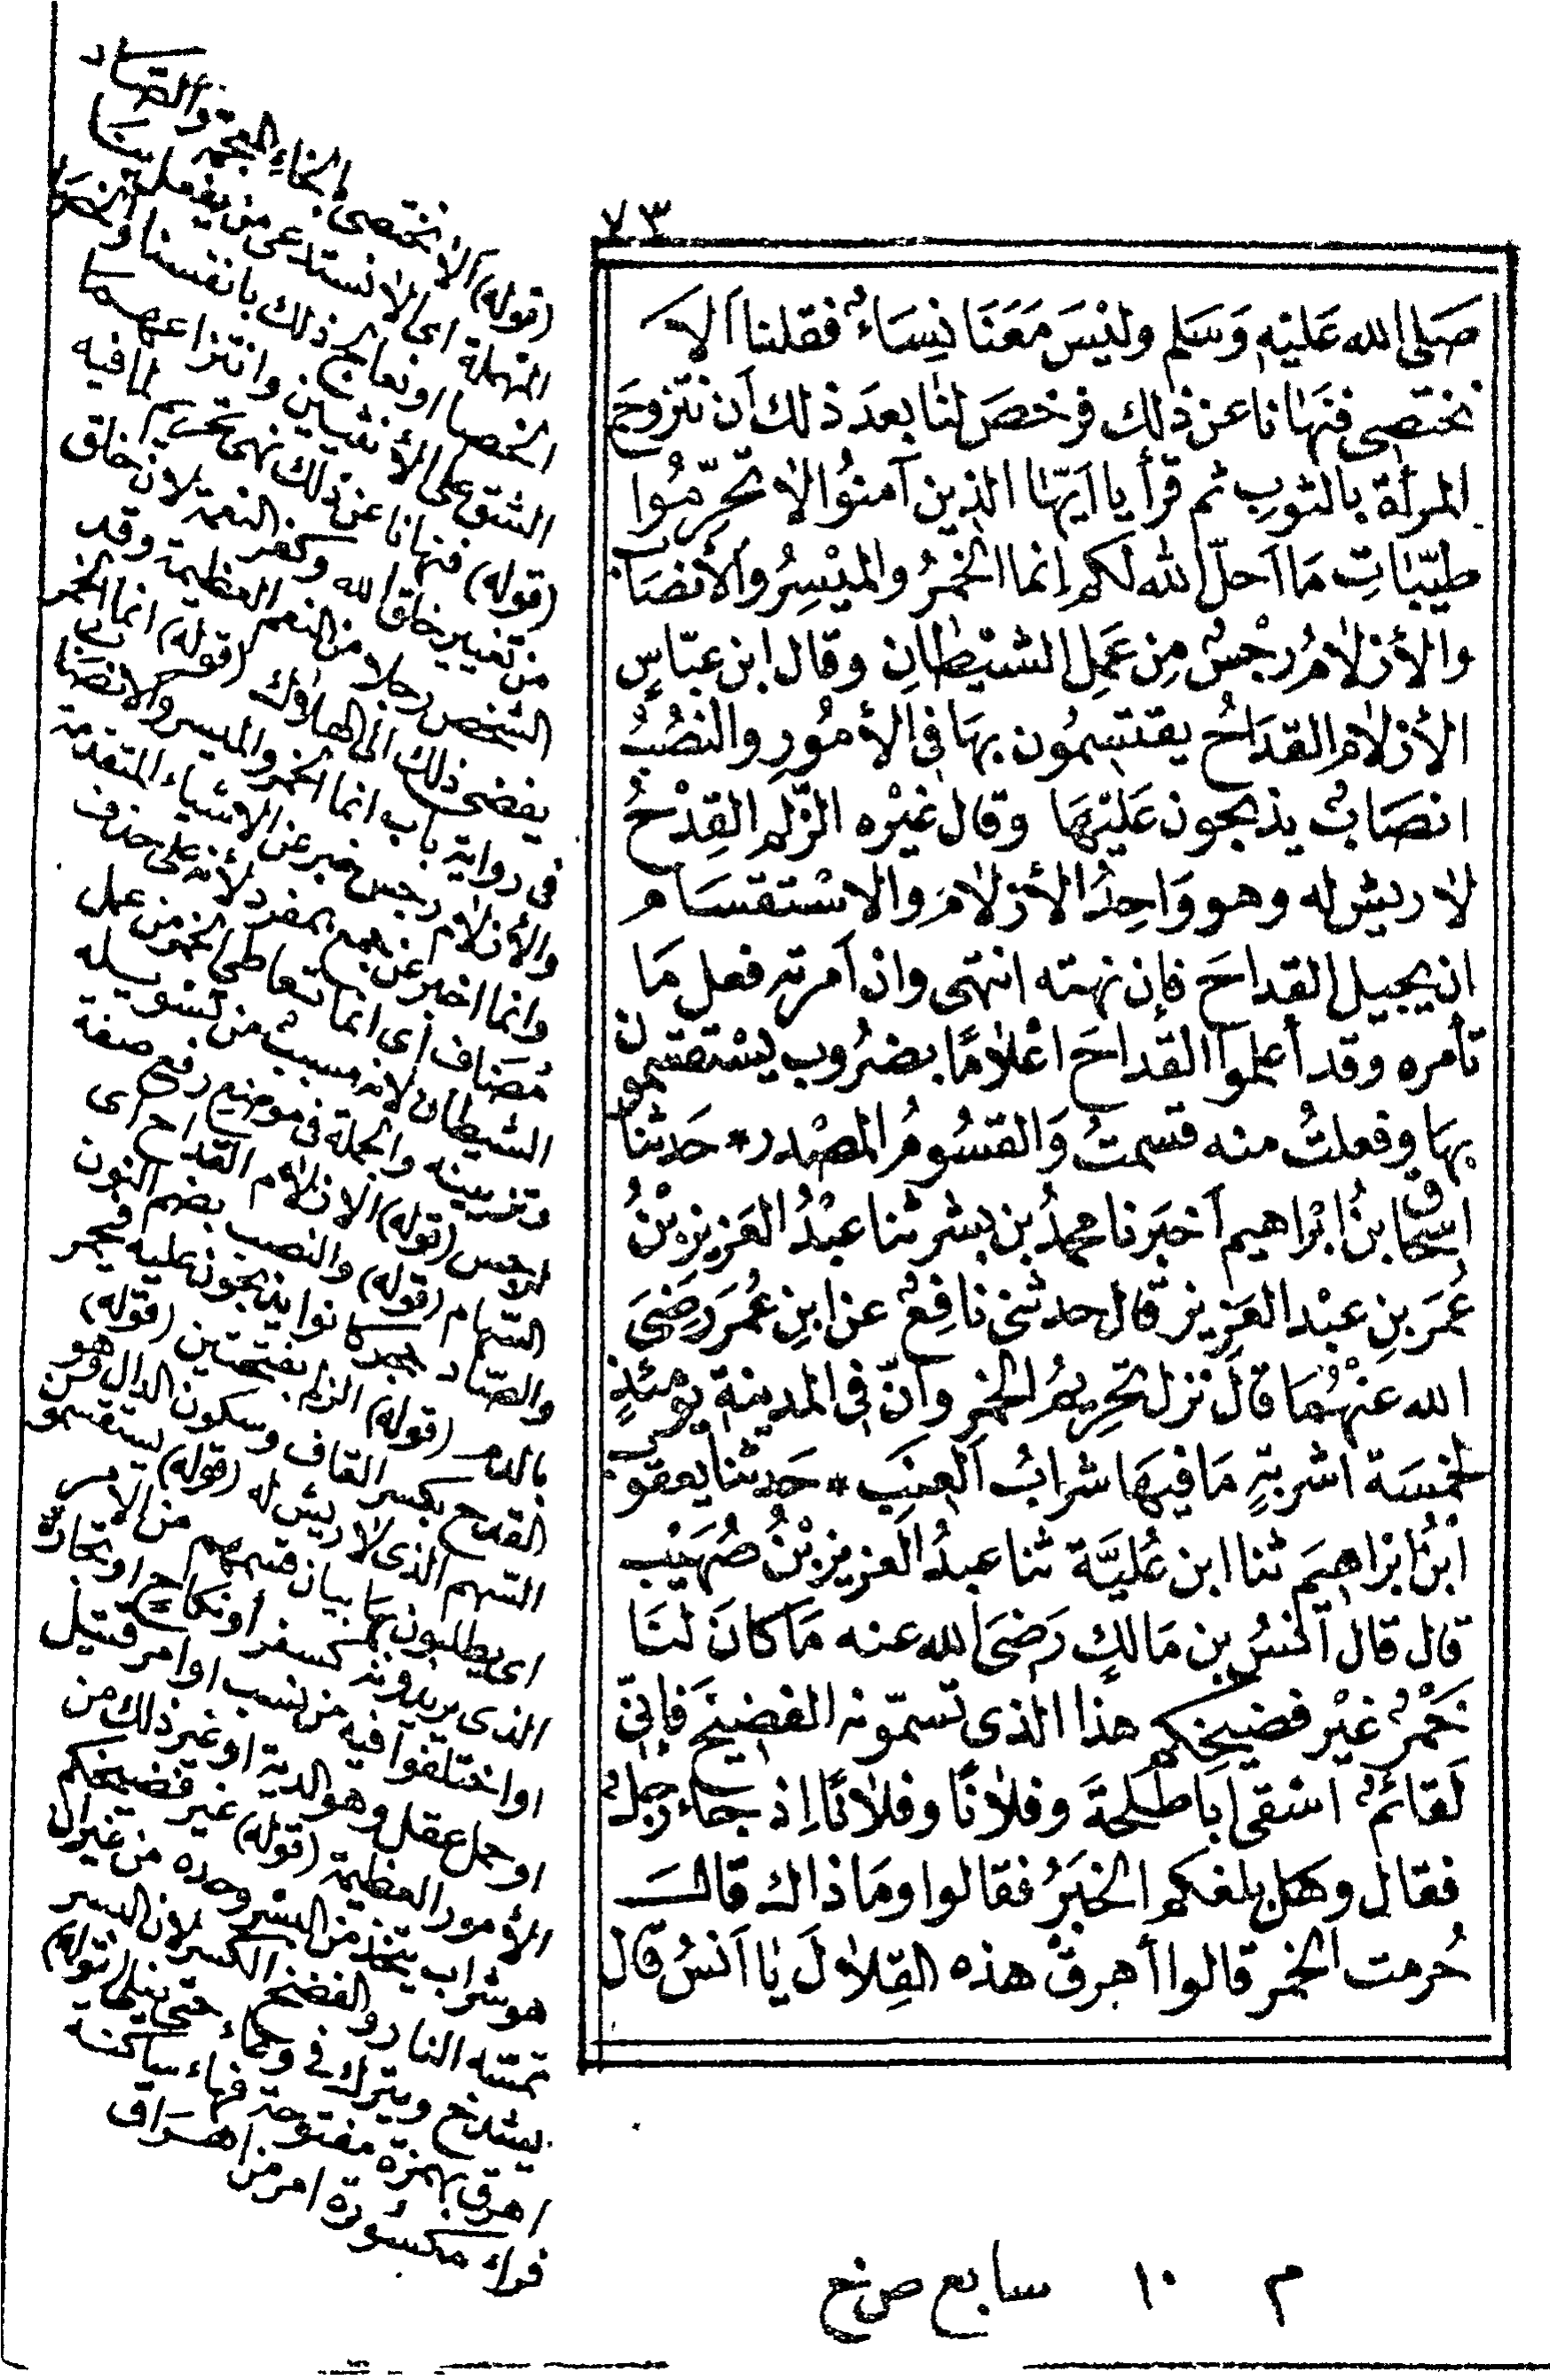 ٧٣
صَلى الله عَليْهِ وَسَلم وليْسَ مَعَنَا نِسَاءٌ فقلنا آلا
نختصى فنَهانا عن ذلك فرخصَ لنا بعدَ ذلك أن نتزوجَ
المرأة بالثوبِ ثم قرأ يا أيّهَا الذين آمنوُا لا تحَرِّمُوا
طيّبَاتِ مَا أحلّ الله لكم إنما الخمْرُ والميْسِرُ والأنصَاب
والأزلامُ رجْسٌ مِن عَمِل الشيْطانِ وقال ابن عبّاسٍ
الأزلام القدَاحُ يقتسِمُون بهَا فى الأمُورِ والنصُبُ
انصَابٌ يذبحون عَليْهَا وقال غيْره الزّلم القِدْحُ
لا ريش له وهو وَاحِدُ الأزلامَ والاسْتقسَام
ان يجيل القداحَ فإن نهته انتهى وان أمرته فعل مَا
تأمره وقد أعلموا القداحَ اعْلامًا بضرُوب يسْتقسمون
بهَا وفعلتُ منه قسمتُ وَالقسُومُ المصْدر * حَدثنا
اسحاق بنُ ابْراهيم أخبَرنا محمدُ بن بشر ثنا عبْدُ العَزيز بْنُ
عُمَر بنِ عبْد العَزِيز قال حدثنى نافِعٌ عن ابنِ عُمَر رَضىَ
الله عنهُمَا قالَ نزل تحرِيمُ الخمْرِ وَانّ فى المدينة يوْمئذٍ
لخمسَة أشربَةٍ مَا فيهَا شرابُ العِنَبِ * حَدثنا يعقوب
ابْنُ ابْراهِيَم ثنا ابن عُليَّة ثنا عبدُ العزيز بْنُ صُهَيْب
قال قال أنسُ بن مَالكٍ رَضىَ الله عنه مَا كانَ لنَا
خَمْرٌ غيْر فضيخِكم هذا الذى تسمّونه الفضيخَ فإنّى
لقائمٌ اسْقى أبا طلحةَ وفلانًا وفلانًا إذ جاء رَجلٌ
فقال وهَل بلغكم الخبَرُ فقالوا ومَا ذاك قالـــ
حُرمت الخمر قالوا أهرقْ هذه القِلالَ يا أنسُ قال
(قوله) ألا نختصى بالخاء المعجمة والصاد
المهملة اى ألا نستدعى من يفعل بنا
الخصا او نعالج ذلك بانفسنا والخصا
الشق على الأنثيين وانتزاعهما
(قوله) فنهانا عن ذلك نهى تحريم لما فيه
من تغيير خلق الله وكفر النعمة لان خلق
الشخص رجلا من النعم العظيمة وقد
يفضى ذلك الى الهلاك (قوله) انما الخمر
فى رواية باب انما الخمر والميسر والانصاب
والأزلام رجس خبر عن الاشياء المتقدمة
وانما اخبر عن جمع بمفرد لأنه على حذف
مُضاف أى انما تعاطى الخمر من عمل
الشيطان لانه مسبب من تسويله
وتزيينه والجملة فى موضع رفع صفة
لرجس (قوله) الازلام القداح اى
السّهام (قوله) والنصب بضم النون
والصّاد كانوا يذبحون عليه فيحمر
بالدم (قوله) الزلم بفتحتين (قوله)
القدح بكسر القاف وسكون الدال وهو
السّهم الذى لا ريش له (قوله) يستقسمون
اى يطلبون بها بيان قسمهم من الامر
الذى يريدونه كسفر أو نكاح او تجارة
او اختلفوا فيه من نسب او امر قتيل
او حمل عقل وهو الدية او غير ذلك من
الأمور العظيمة (قوله) غير فضيخكم
هو شراب يتخذ من البسر وحده من غير ان
تمسّه النار والفضخ الكسر لان البسر
يشدخ ويترك فى وعاء حتى يغلى (قوله)
اهرق بهمزة مفتوحة فهاء ساكنة
فراء مكسورة امر من اهـراق
م ١٠ سابع ص خ